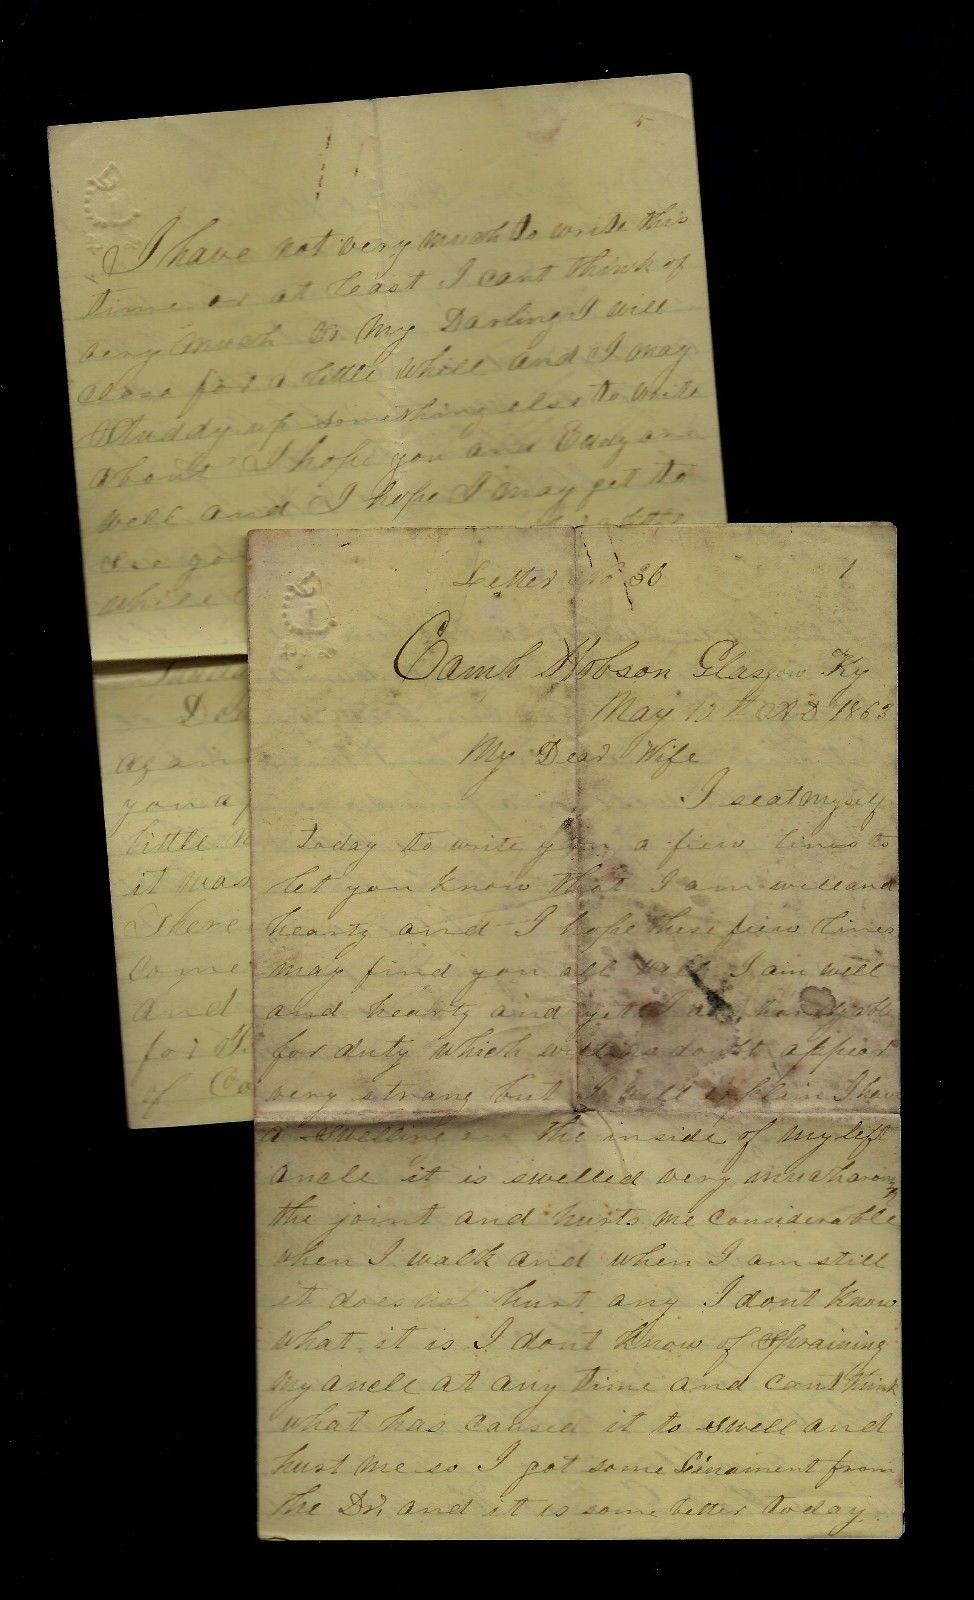 5
I have not very much to write this
time or at least I cant think of
very much so My Darling I will
close for a little while and I may
Studdy up something else to write
about I hope you and Eady are
well and I hope I may get to
see
while

again
you a
little
it was
There
come
and
for
of
Letter No 36
1
Camp Hobson Glasgow Ky
May AD 1863
My Dear Wife
I seat myself
today to write you a fiew lines to
let you know that I am well and
hearty and I hope these fiew lines
may find you all well I am well
and hearty and yet I am hardly able
for duty which will no doubt appear
very strang but I will explain I have
a swelling on the inside of my left
ancle it is swelled very much around
the joint and hurts me considerable
when I walk and when I am still
it does not hurt any I dont know
what it is I dont know of Spraining
my ancle at any time and cant think
what has caused it to swell and
hurt me so I got some Linament from
the Dr, and it is some better today